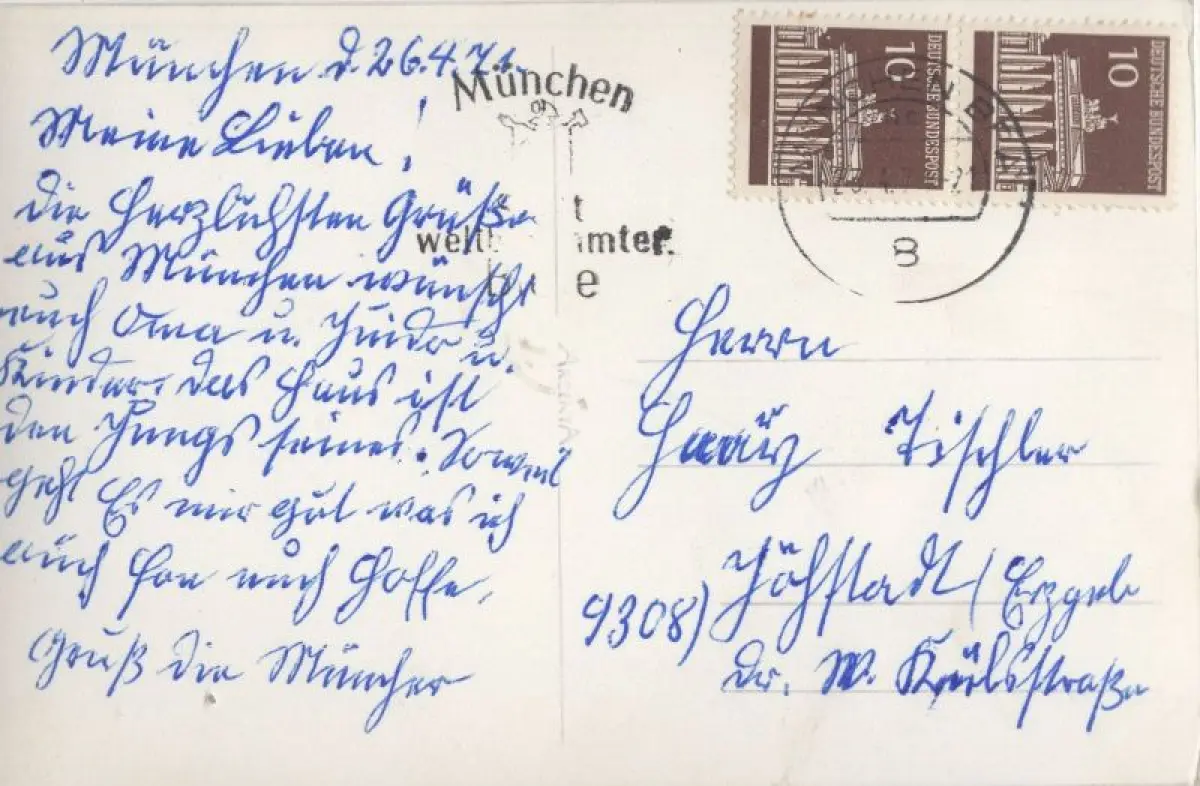 München d. 26.4.71.
Meine Lieben!
die Herzlichsten Grüße
aus München wünscht
euch Oma u.
Kinder. das Haus ist
den Jungs seines. Soweit
geht Es mir gut was ich
auch fon euch Hoffe.
Gruß die Müncher
München
t
welt mter
e
DEUTSCHE BUNDESPOST
10
DEUTSCHE BUNDESPOST
10
8
Herrn
Tischler
9308) Jöhstadt / Erzgeb
dr. W. Külzstraße